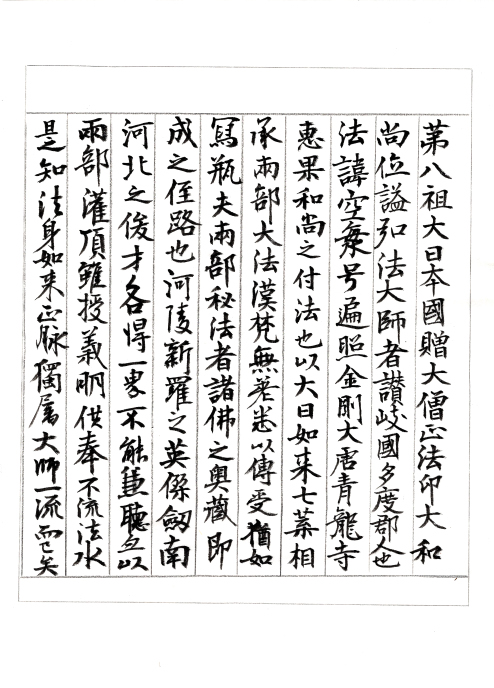 第八祖大日本國贈大僧正法印大和
尚位謚弘法大師者讃岐國多度郡人也
法諱空海号遍照金剛大唐青龍寺
惠果和尚之付法也以大日如来七葉相
承兩部大法漢梵無差悉以傳受猶如
冩瓶夫兩部秘法者諸佛之奥藏即
成之徑路也河陵新羅之英傑劔南
河北之俊才各得一界不能兼聽
兩部灌頂雖授義明供奉不流法水
是知法身如来正脉獨属大師一流而已矣